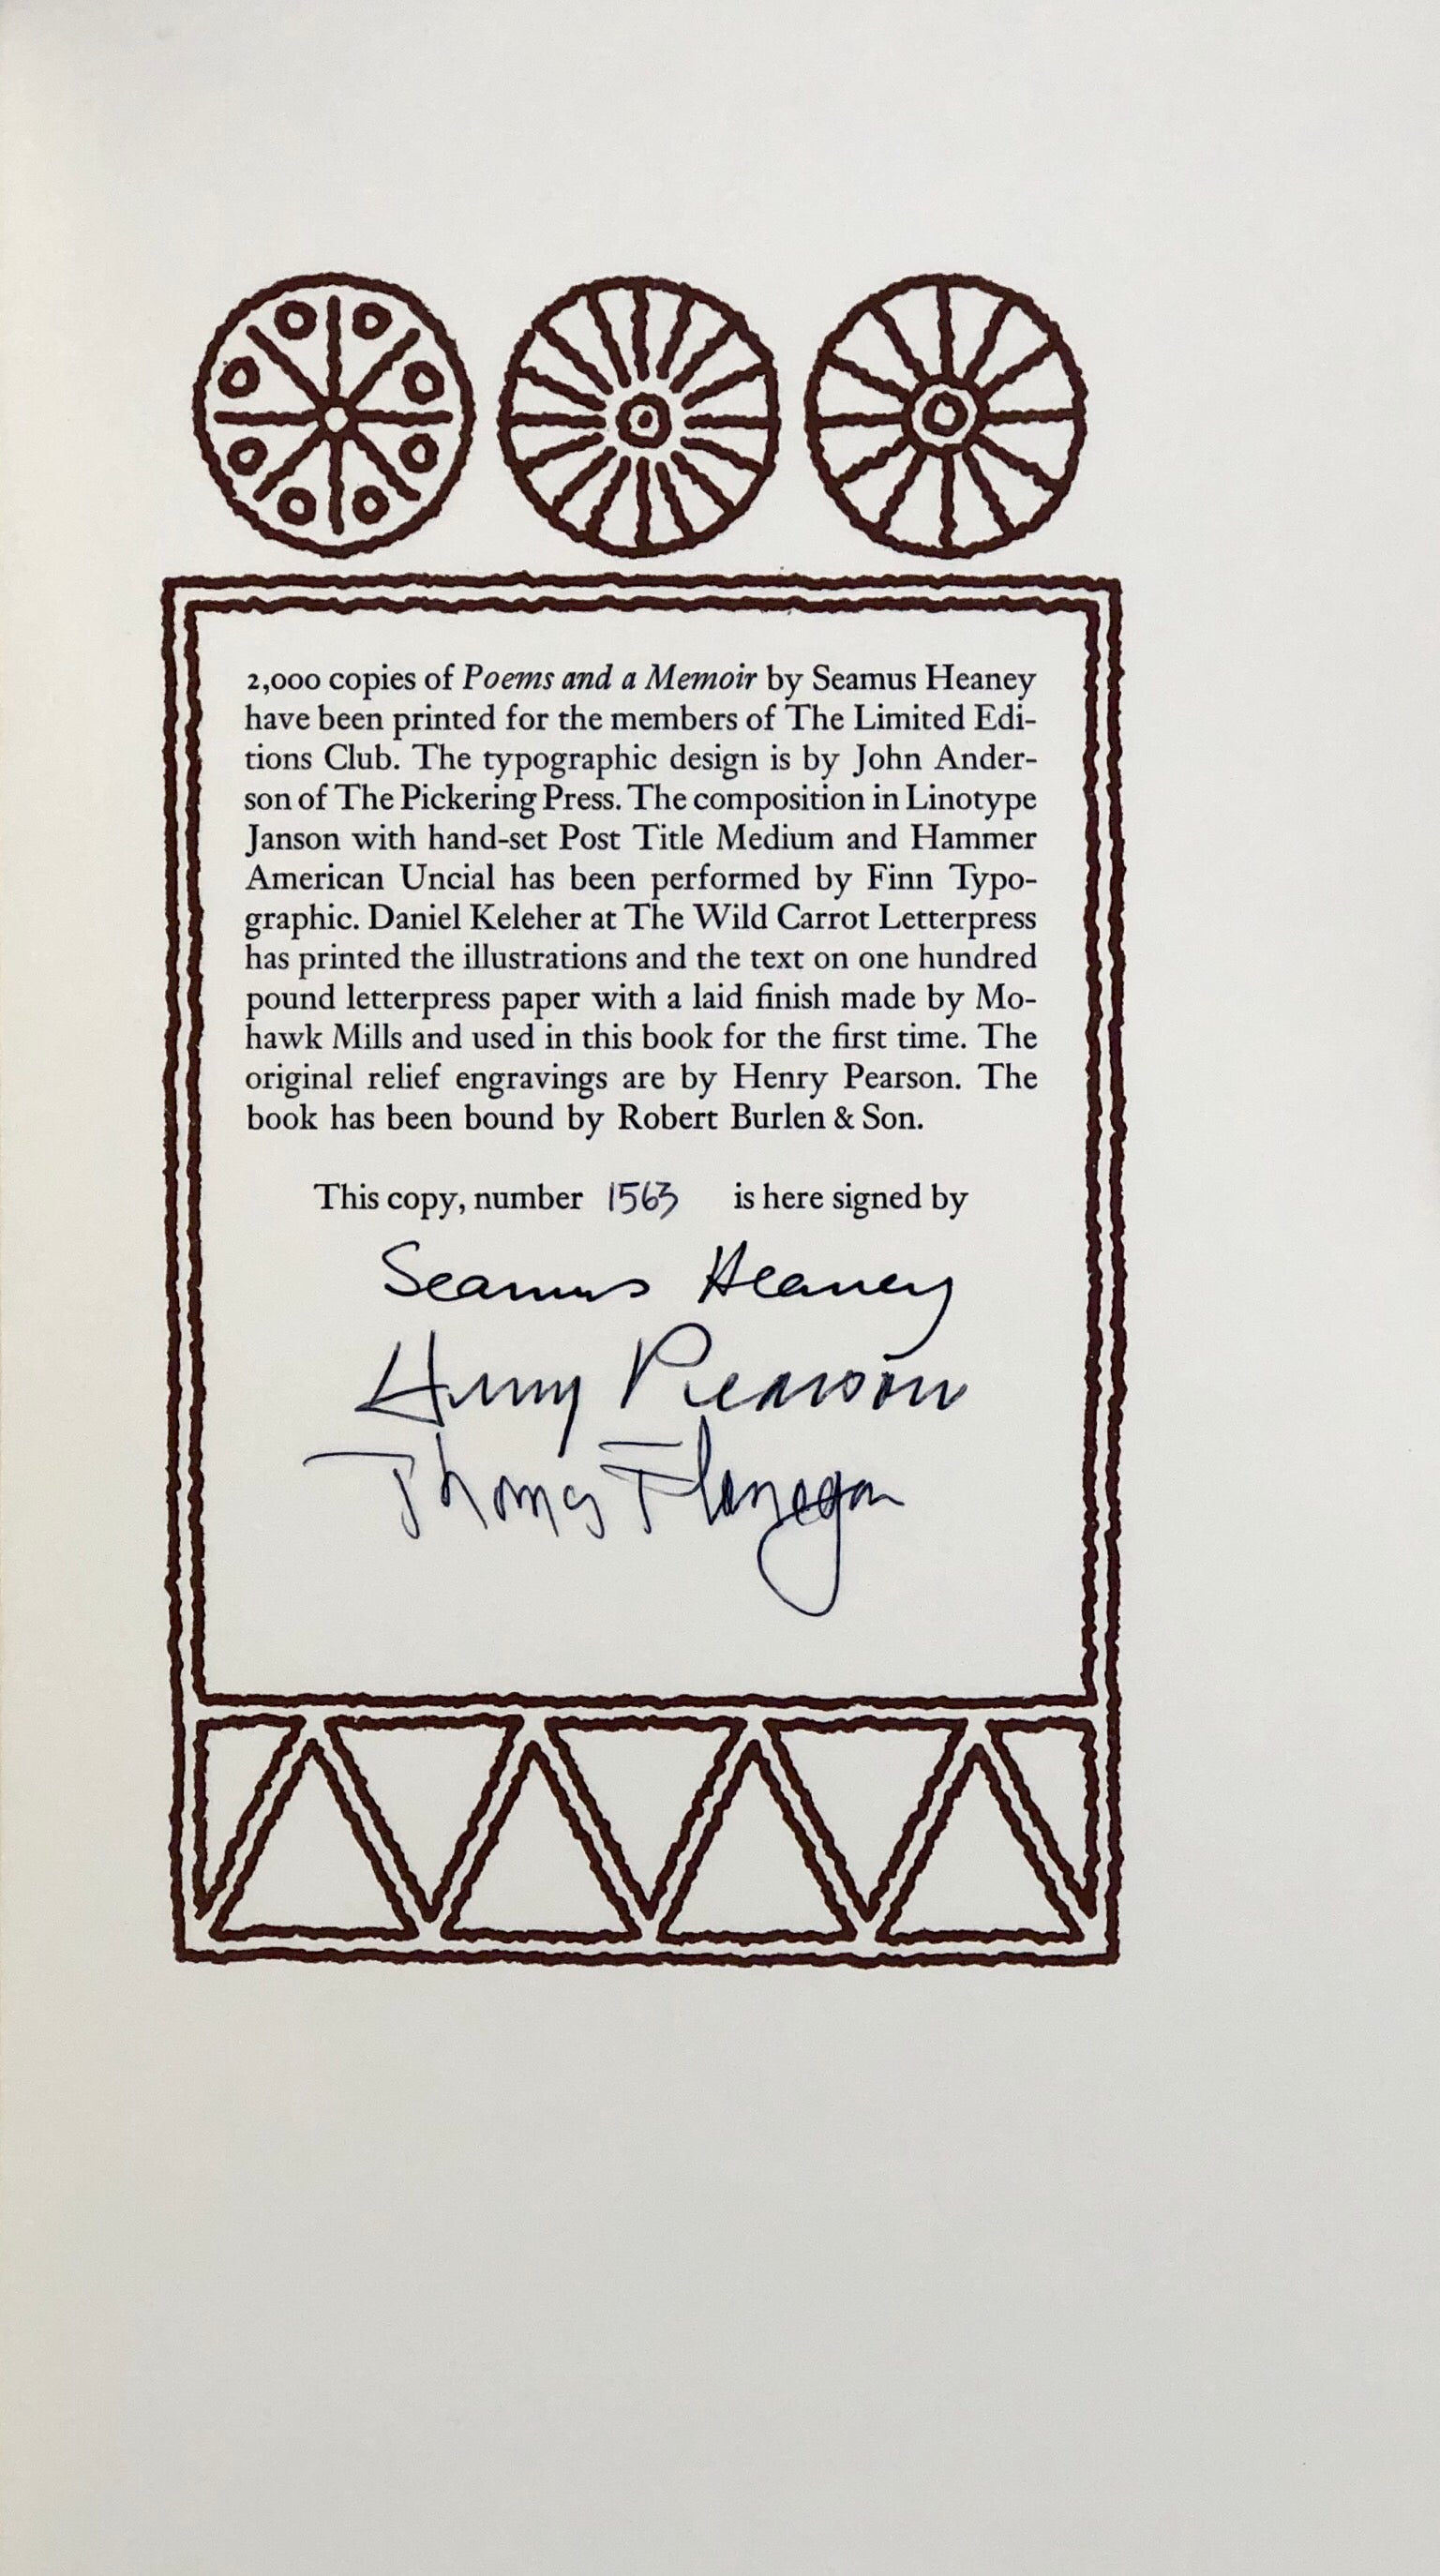 2,000 copies of Poems and a Memoir by Seamus Heaney
have been printed for the members of The Limited Edi-
tions Club. The typographic design is by John Ander-
son of The Pickering Press. The composition in Linotype
Janson with hand-set Post Title Medium and Hammer
American Uncial has been performed by Finn Typo-
graphic. Daniel Keleher at The Wild Carrot Letterpress
has printed the illustrations and the text on one hundred
pound letterpress paper with a laid finish made by Mo-
hawk Mills and used in this book for the first time. The
original relief engravings are by Henry Pearson. The
book has been bound by Robert Burlen & Son.
This copy, number 1563 is here signed by
Seamus Heaney
Henry Pearson
Thomas Flanagan